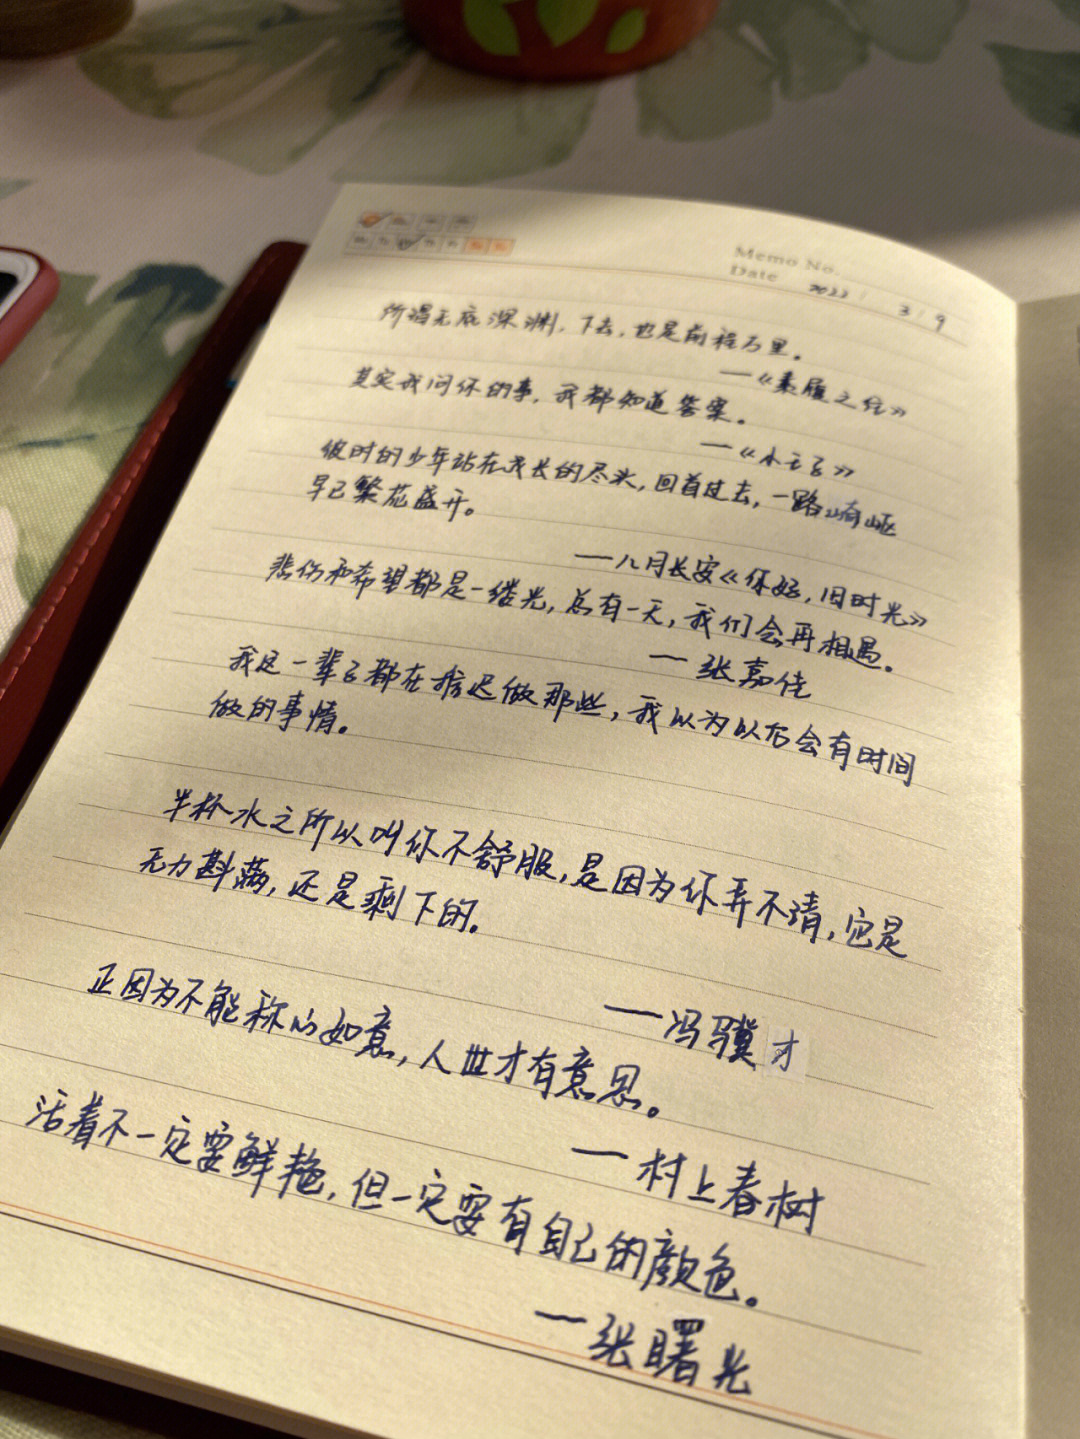 Memo No.
Date 2022 / 3 / 9
所谓无底深渊，下去，也是前程万里。
—《素履之往》
其实我问你的事，我都知道答案。
—《小王子》
彼时的少年站在成长的尽头，回首过去，一路崎岖
早已繁花盛开。
—八月长安《你好，旧时光》
悲伤和希望都是一缕光，总有一天，我们会再相遇。
—张嘉佳
我这一辈子都在推迟做那些，我以为以后会有时间
做的事情。
半杯水之所以叫你不舒服，是因为你弄不清，它是
无力斟满，还是剩下的。
—冯骥才
正因为不能称心如意，人世才有意思。
—村上春树
活着不一定要鲜艳，但一定要有自己的颜色。
—张曙光